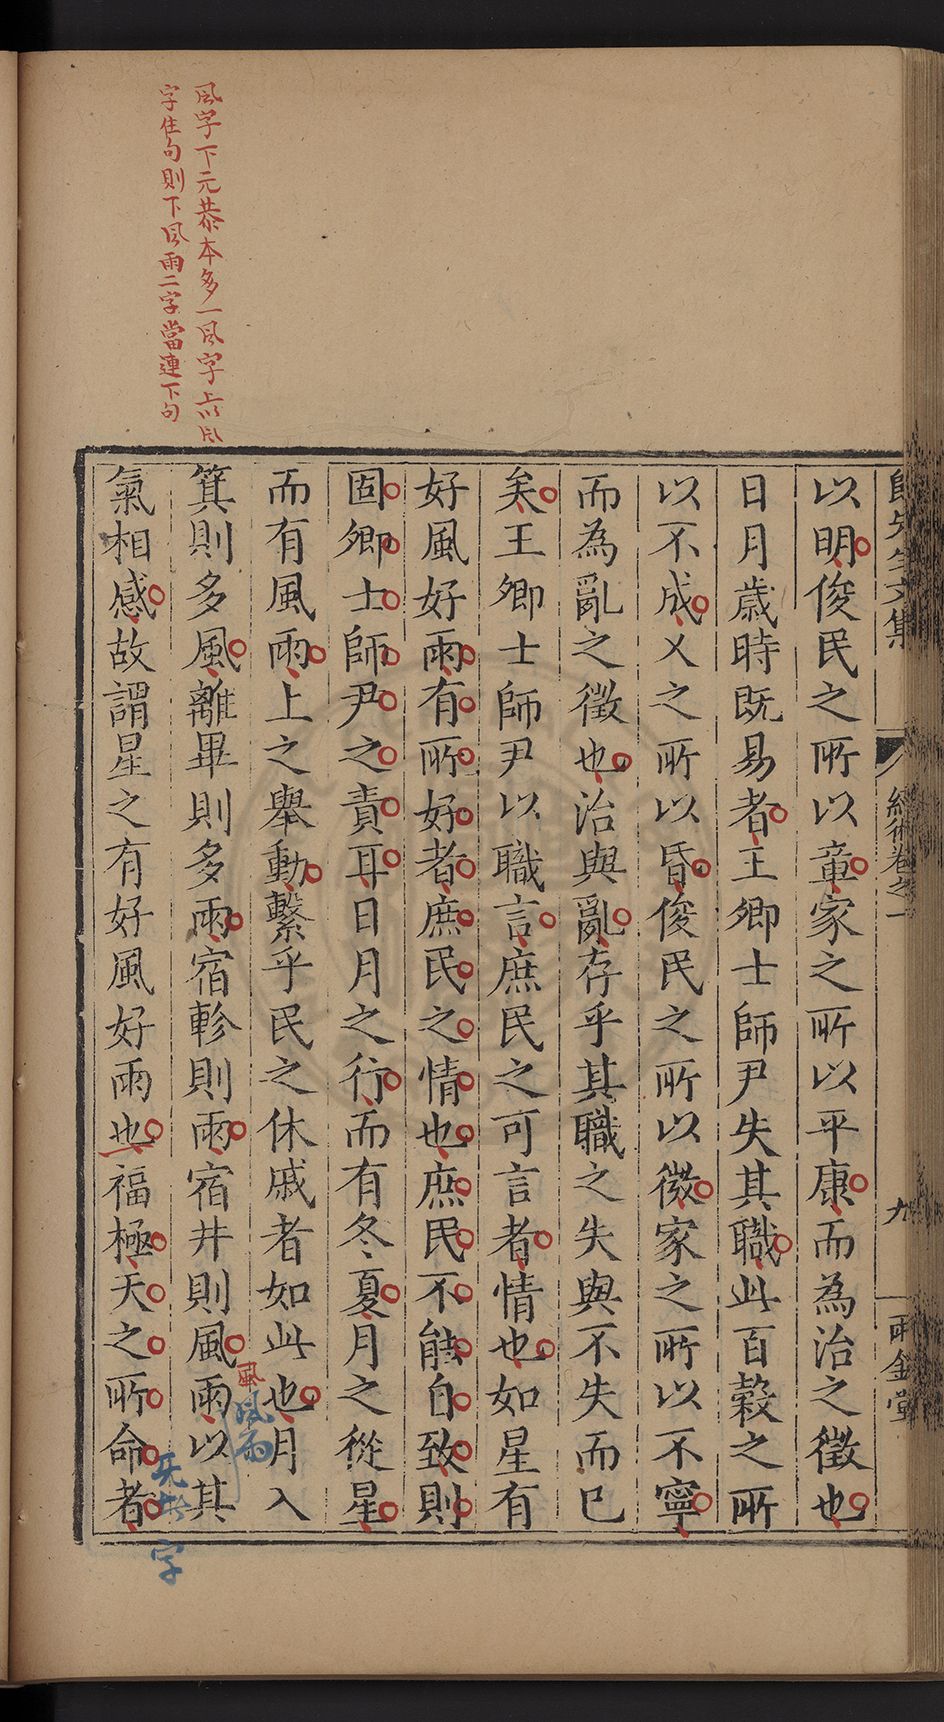 以明俊民之所以章家之所以平康而為治之徵也
日月歲時既易者王卿士師尹失其職此百穀之所
以不成乂之所以昏俊民之所以微家之所以不寧
而為亂之徵也治與亂存乎其職之失與不失而已
矣王卿士師尹以職言庶民之可言者情也如星有
好風好雨有所好者庶民之情也庶民不能自致則
固卿士師尹之責耳日月之行而有冬夏月之從星
而有風雨上之舉動繫乎民之休戚者如此也月入
箕則多風離畢則多雨宿軫則雨宿井則風雨以其
氣相感故謂星之有好風好雨也福極天之所命者
風字下元恭本多一風字上以風
字住句則下風雨二字當連下句
風
風雨
經術卷之一
九
兩金堂